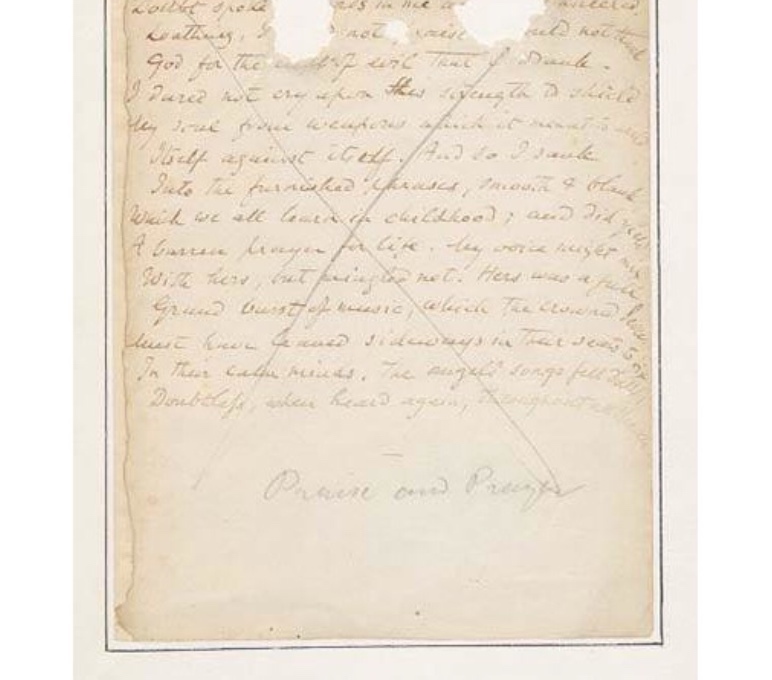 Doubt spoke in me
Loathing, I not ould not thank
God for the of evil that I drank.
I dared not cry upon His strength to shield
My soul from weapons which it meant to
Itself against itself. And so I sank
Into the furnished phrases, smooth & blank
Which we all learn in childhood; and did yield
A barren prayer for life. My voice might mix
With hers, but mingled not. Hers was a full
Grand burst of music, which the crowned
Must have leaned sideways in their seats to fix
In their calm minds. The angels' songs fell dull
Doubtless, when heard again, throughout
Praise and Prayer